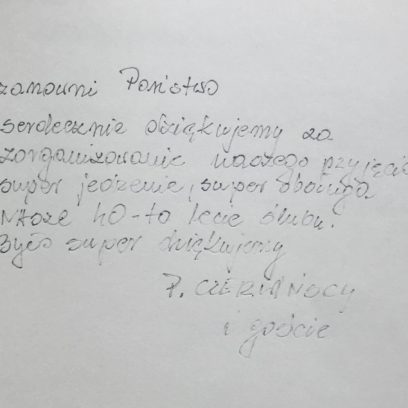 zanowni Państwo
serdecznie dziękujemy za
zorganizowanie naszego przyjęcia
super jedzenie, super obsługa
Nasze 40-to lecie ślubu.
Było super dziękujemy
P.
i goście